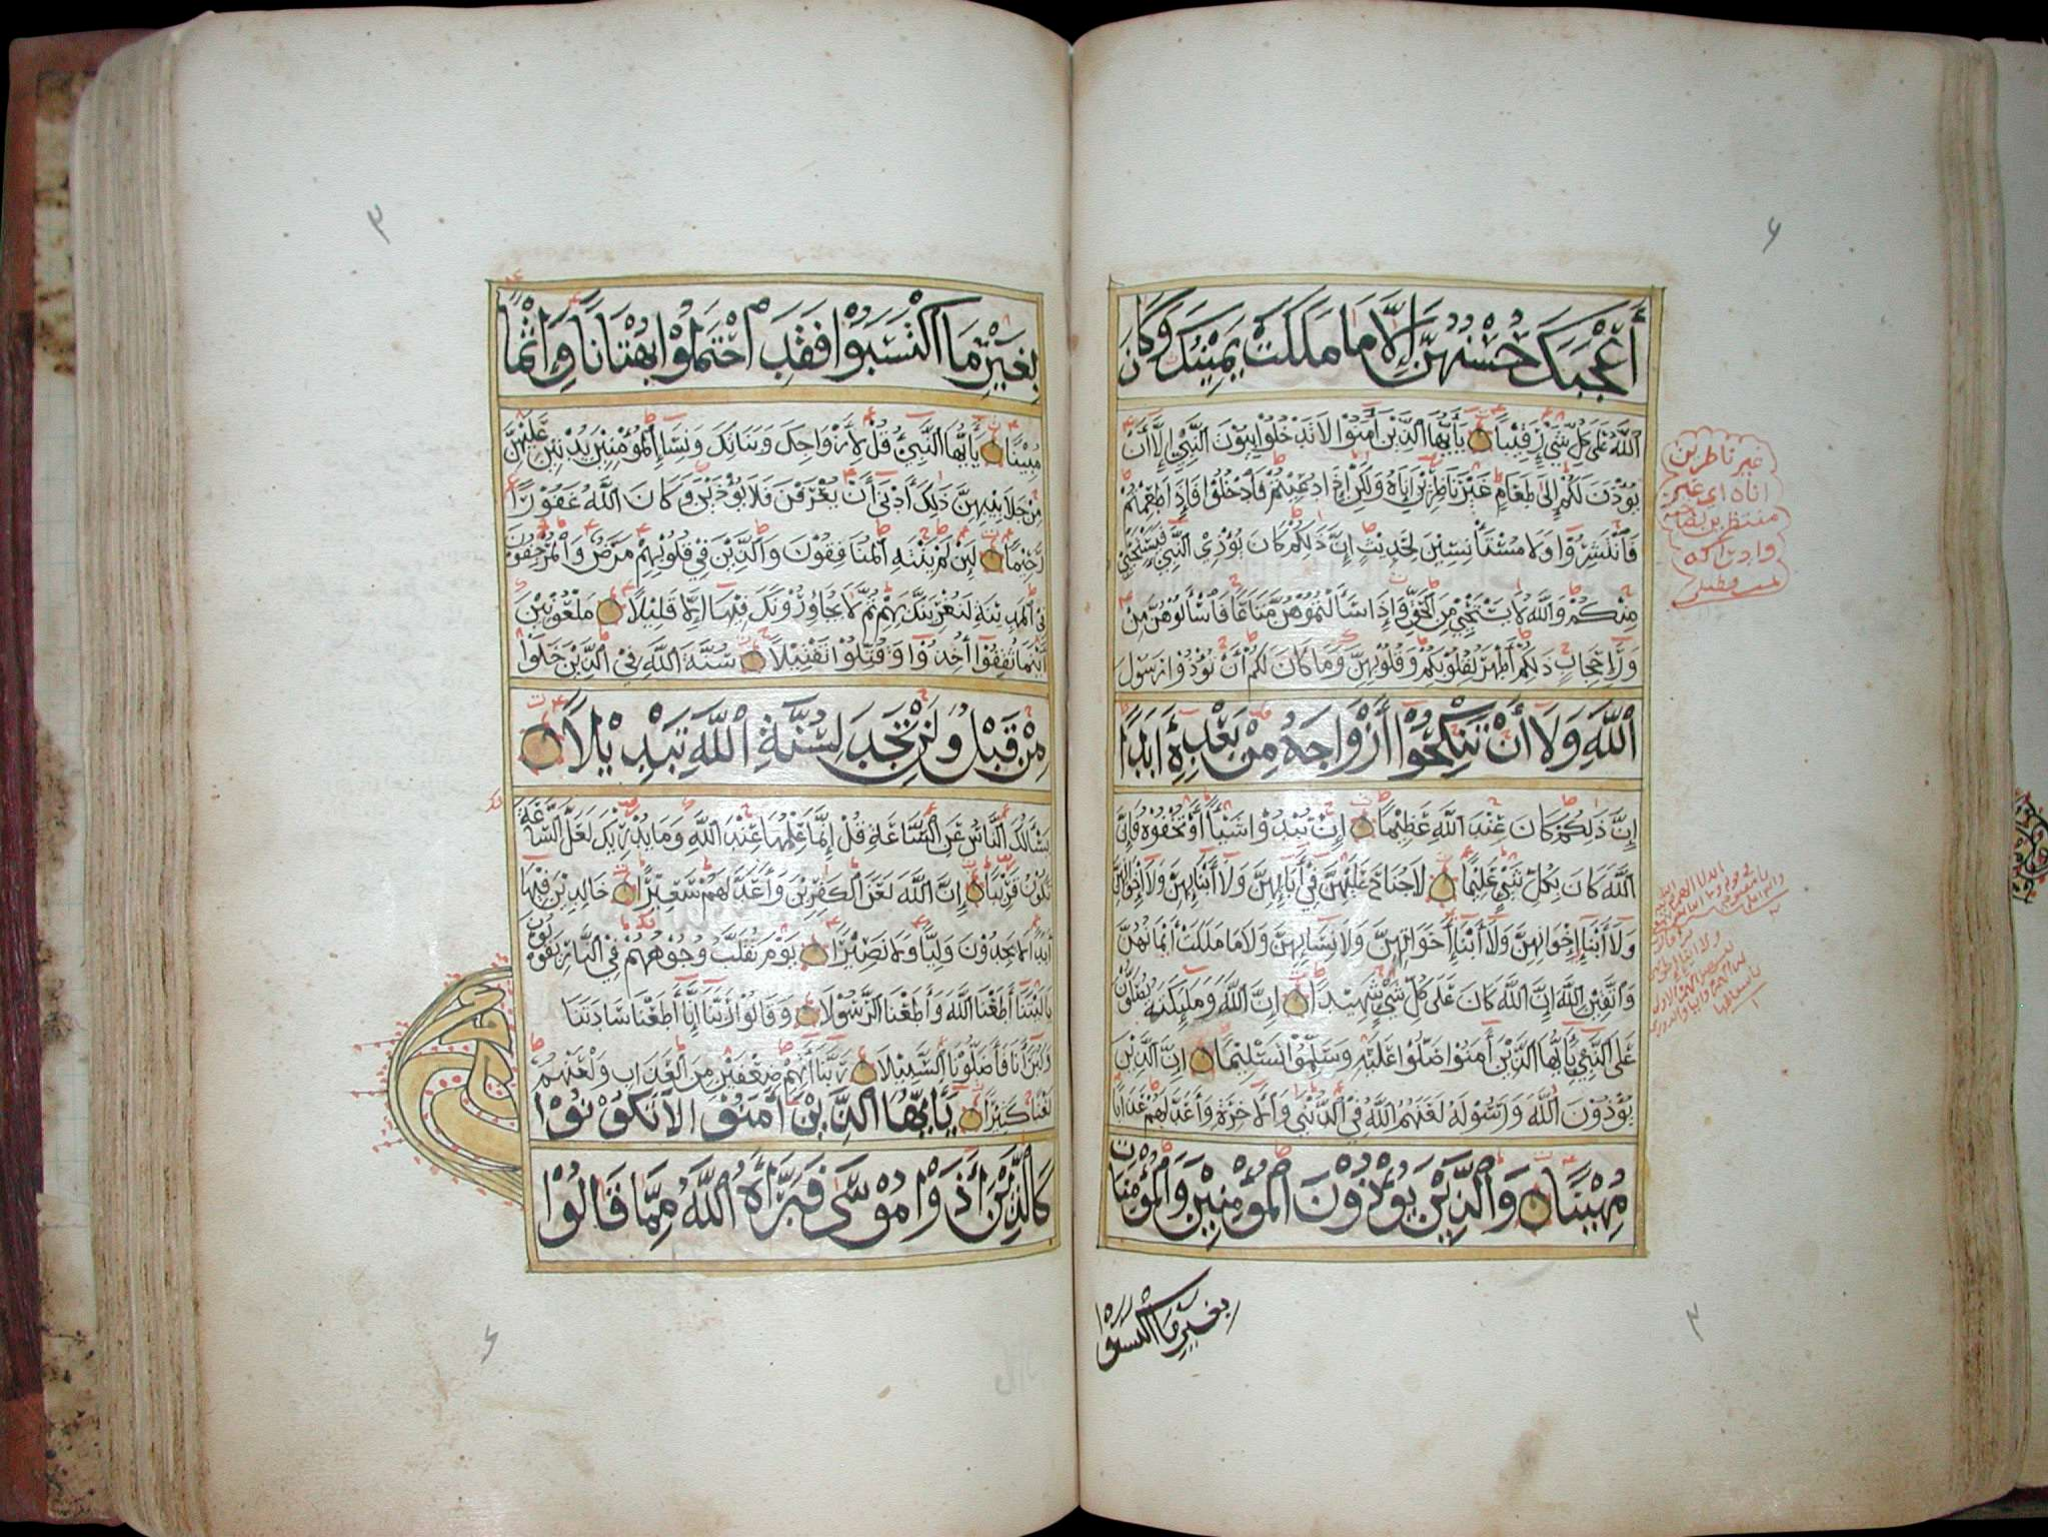 ٦
أَعْجَبَكَ حُسْنُهُنَّ إِلَّا مَا مَلَكَتْ يَمِيْنُكَ وَكَانَ
اللَّهُ عَلَى كُلِّ شَيْءٍ رَّقِيْبًا يَٰأَيُّهَا الَّذِيْنَ آمَنُوْا لَا تَدْخُلُوْا بُيُوْتَ النَّبِيِّ إِلَّا أَنْ
يُؤْذَنَ لَكُمْ إِلَى طَعَامٍ غَيْرَ نَاظِرِيْنَ إِنَاهُ وَلَكِنْ إِذَا دُعِيْتُمْ فَادْخُلُوْا فَإِذَا طَعِمْتُمْ
فَانْتَشِرُوْا وَلَا مُسْتَأْنِسِيْنَ لِحَدِيْثٍ إِنَّ ذَلِكُمْ كَانَ يُؤْذِي النَّبِيَّ فَيَسْتَحْيِي
مِنْكُمْ وَاللَّهُ لَا يَسْتَحْيِي مِنَ الْحَقِّ وَإِذَا سَأَلْتُمُوْهُنَّ مَتَاعًا فَاسْأَلُوْهُنَّ مِنْ
وَرَاءِ حِجَابٍ ذَلِكُمْ أَطْهَرُ لِقُلُوْبِكُمْ وَقُلُوْبِهِنَّ وَمَا كَانَ لَكُمْ أَنْ تُؤْذُوْا رَسُوْلَ
اللَّهِ وَلَا أَنْ تَنْكِحُوْا أَزْوَاجَهُ مِنْ بَعْدِهِ أَبَدًا
إِنَّ ذَلِكُمْ كَانَ عِنْدَ اللَّهِ عَظِيْمًا إِنْ تُبْدُوْا شَيْئًا أَوْ تُخْفُوْهُ فَإِنَّ
اللَّهَ كَانَ بِكُلِّ شَيْءٍ عَلِيْمًا لَا جُنَاحَ عَلَيْهِنَّ فِي آبَائِهِنَّ وَلَا أَبْنَائِهِنَّ وَلَا إِخْوَانِهِنَّ
وَلَا أَبْنَاءِ إِخْوَانِهِنَّ وَلَا أَبْنَاءِ أَخَوَاتِهِنَّ وَلَا نِسَائِهِنَّ وَلَا مَا مَلَكَتْ أَيْمَانُهُنَّ
وَاتَّقِيْنَ اللَّهَ إِنَّ اللَّهَ كَانَ عَلَى كُلِّ شَيْءٍ شَهِيْدًا إِنَّ اللَّهَ وَمَلَٰئِكَتَهُ يُصَلُّوْنَ
عَلَى النَّبِيِّ يَٰأَيُّهَا الَّذِيْنَ آمَنُوْا صَلُّوْا عَلَيْهِ وَسَلِّمُوْا تَسْلِيْمًا إِنَّ الَّذِيْنَ
يُؤْذُوْنَ اللَّهَ وَرَسُوْلَهُ لَعَنَهُمُ اللَّهُ فِي الدُّنْيَا وَالْآخِرَةِ وَأَعَدَّ لَهُمْ عَذَابًا
مُهِيْنًا وَالَّذِيْنَ يُؤْذُوْنَ الْمُؤْمِنِيْنَ وَالْمُؤْمِنَاتِ
بغير ما اكتسبوا
غير ناظرين
اناه اي غير
منتظرين
٣
بِغَيْرِ مَا اكْتَسَبُوْا فَقَدِ احْتَمَلُوْا بُهْتَانًا وَإِثْمًا
مُبِيْنًا يَٰأَيُّهَا النَّبِيُّ قُلْ لِأَزْوَاجِكَ وَبَنَاتِكَ وَنِسَاءِ الْمُؤْمِنِيْنَ يُدْنِيْنَ عَلَيْهِنَّ
مِنْ جَلَابِيْبِهِنَّ ذَلِكَ أَدْنَى أَنْ يُعْرَفْنَ فَلَا يُؤْذَيْنَ وَكَانَ اللَّهُ غَفُوْرًا
رَّحِيْمًا لَئِنْ لَمْ يَنْتَهِ الْمُنَافِقُوْنَ وَالَّذِيْنَ فِي قُلُوْبِهِمْ مَرَضٌ وَالْمُرْجِفُوْنَ
فِي الْمَدِيْنَةِ لَنُغْرِيَنَّكَ بِهِمْ ثُمَّ لَا يُجَاوِرُوْنَكَ فِيْهَا إِلَّا قَلِيْلًا مَلْعُوْنِيْنَ
أَيْنَمَا ثُقِفُوْا أُخِذُوْا وَقُتِّلُوْا تَقْتِيْلًا سُنَّةَ اللَّهِ فِي الَّذِيْنَ خَلَوْا
مِنْ قَبْلُ وَلَنْ تَجِدَ لِسُنَّةِ اللَّهِ تَبْدِيْلًا
يَسْأَلُكَ النَّاسُ عَنِ السَّاعَةِ قُلْ إِنَّمَا عِلْمُهَا عِنْدَ اللَّهِ وَمَا يُدْرِيْكَ لَعَلَّ السَّاعَةَ
تَكُوْنُ قَرِيْبًا إِنَّ اللَّهَ لَعَنَ الْكَٰفِرِيْنَ وَأَعَدَّ لَهُمْ سَعِيْرًا خَالِدِيْنَ فِيْهَا
أَبَدًا لَا يَجِدُوْنَ وَلِيًّا وَلَا نَصِيْرًا يَوْمَ تُقَلَّبُ وُجُوْهُهُمْ فِي النَّارِ يَقُوْلُوْنَ
يَا لَيْتَنَا أَطَعْنَا اللَّهَ وَأَطَعْنَا الرَّسُوْلَا وَقَالُوْا رَبَّنَا إِنَّا أَطَعْنَا سَادَتَنَا
وَكُبَرَاءَنَا فَأَضَلُّوْنَا السَّبِيْلَا رَبَّنَا آتِهِمْ ضِعْفَيْنِ مِنَ الْعَذَابِ وَالْعَنْهُمْ
لَعْنًا كَبِيْرًا يَٰأَيُّهَا الَّذِيْنَ آمَنُوْا لَا تَكُوْنُوْا
كَالَّذِيْنَ آذَوْا مُوْسَى فَبَرَّأَهُ اللَّهُ مِمَّا قَالُوْا